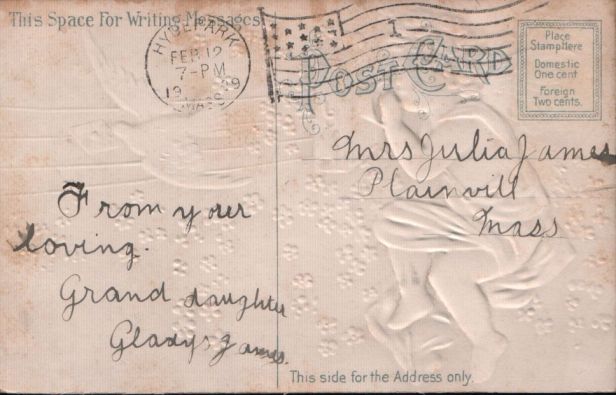 This Space For Writing Messages.
HYDE PARK.
FEB 12
7-PM
19 9
MASS
1
POST CARD
Place
Stamp Here
Domestic
One cent
Foreign
Two cents.
Mrs Julia James
Plainvill
Mass
From your
loving.
Grand daughter
Gladys James.
This side for the Address only.